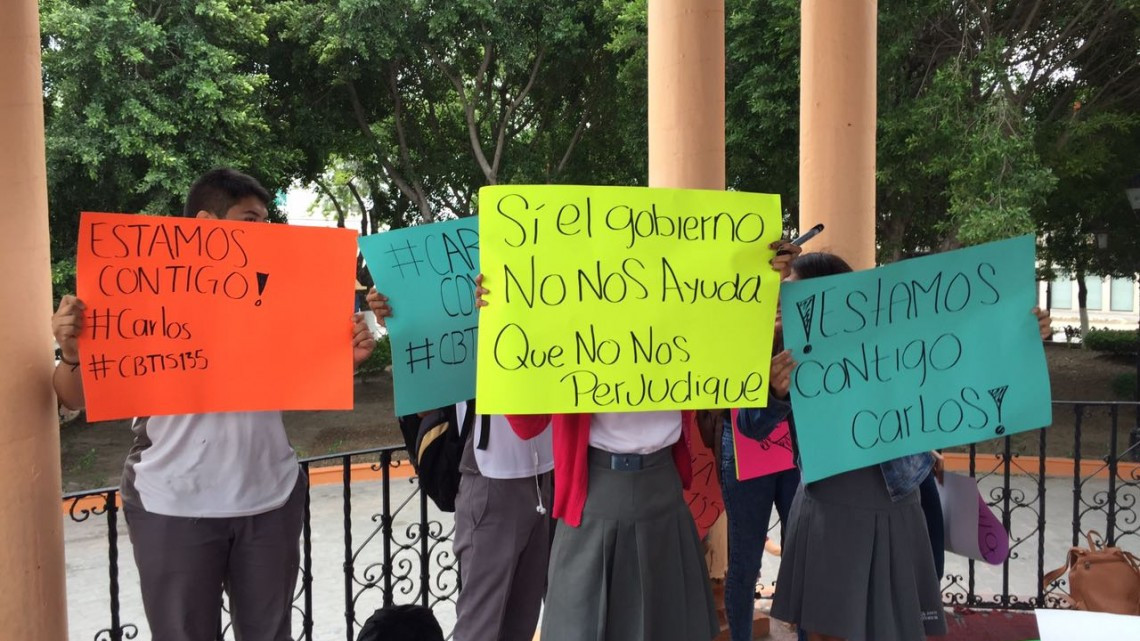 ESTAMOS
CONTIGO!
#Carlos
#CBTIS135
#CAR
CON
#CBT
Sí el gobierno
No Nos Ayuda
Que No Nos
PerJudique
¡ESTAMOS
CONTIGO
CARLOS!